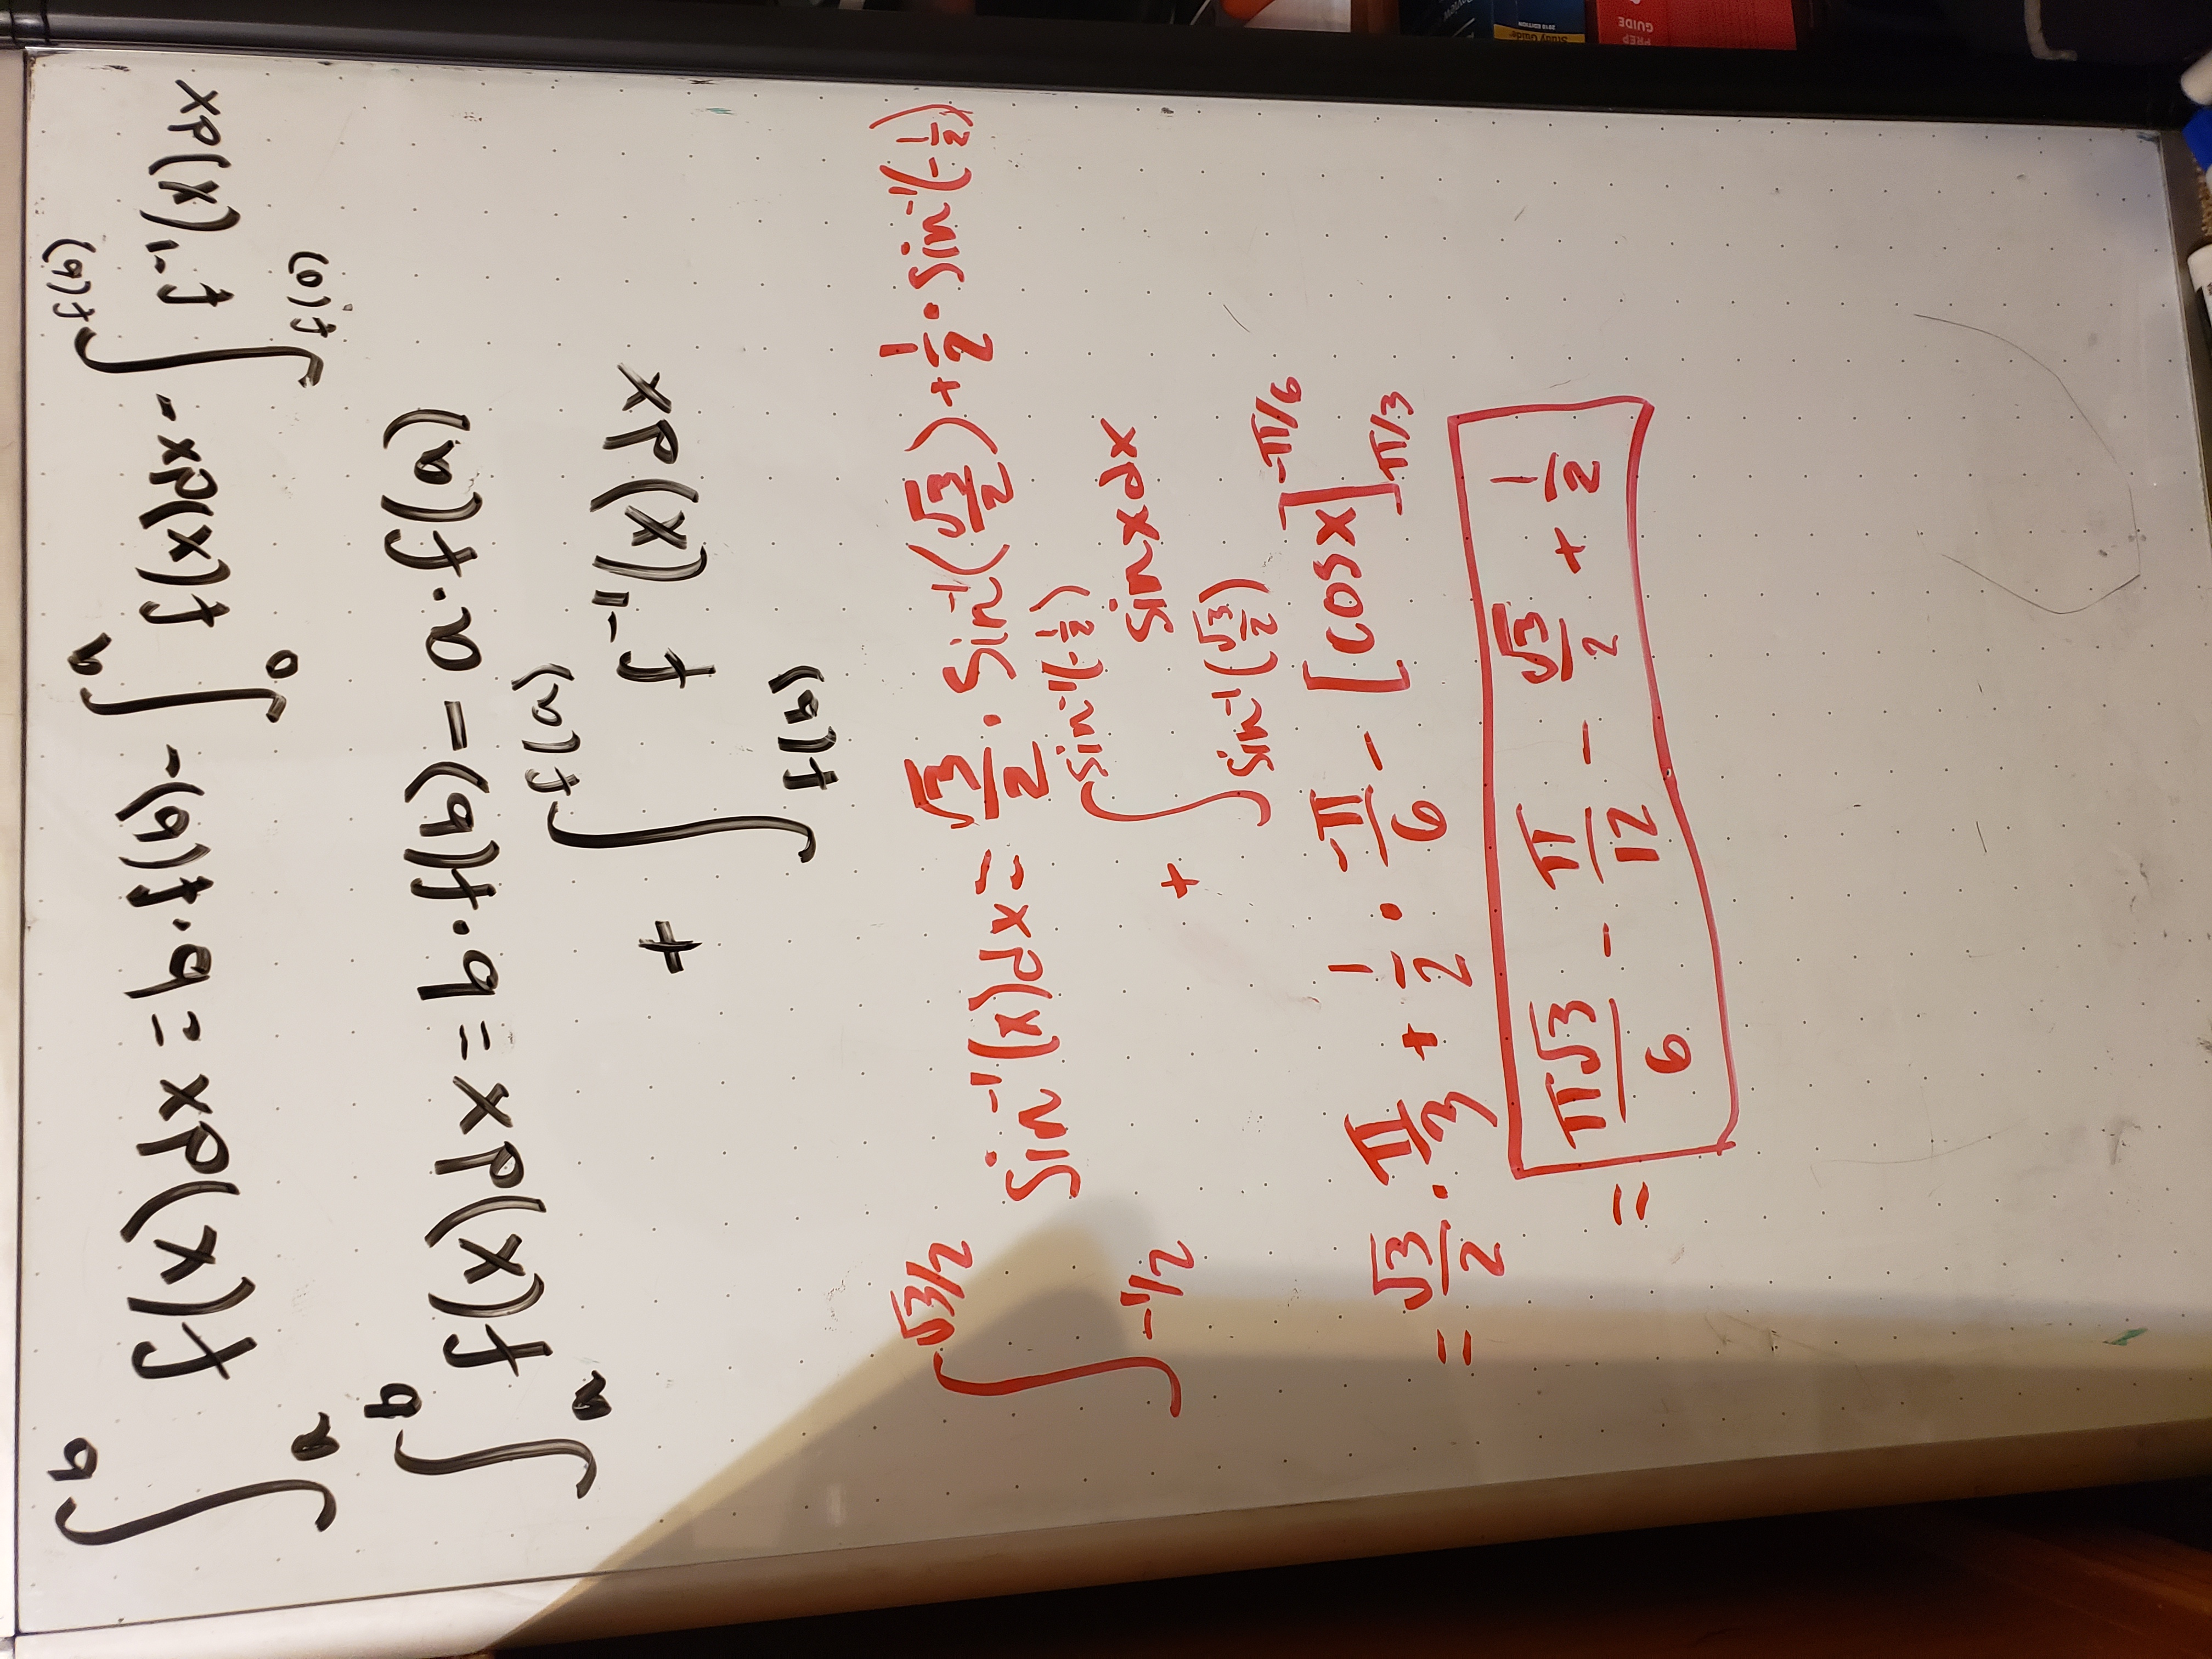 ∫_a^b f(x)dx = b·f(b) - ∫_0^a f(x)dx - ∫_{f(0)}^{f(b)} f⁻¹(x)dx
∫_a^b f(x)dx = b·f(b) - a·f(a)
+ ∫_{f(b)}^{f(a)} f⁻¹(x)dx
∫_{-1/2}^{√3/2} sin⁻¹(x)dx = √3/2 · sin⁻¹(√3/2) + 1/2 · sin⁻¹(-1/2)
+ ∫_{sin⁻¹(√3/2)}^{sin⁻¹(-1/2)} sinxdx
= √3/2 · π/3 + 1/2 · -π/6 - [cosx]_{π/3}^{-π/6}
= π√3/6 - π/12 - √3/2 + 1/2
Study Guide
2018 EDITION
PREP
GUIDE